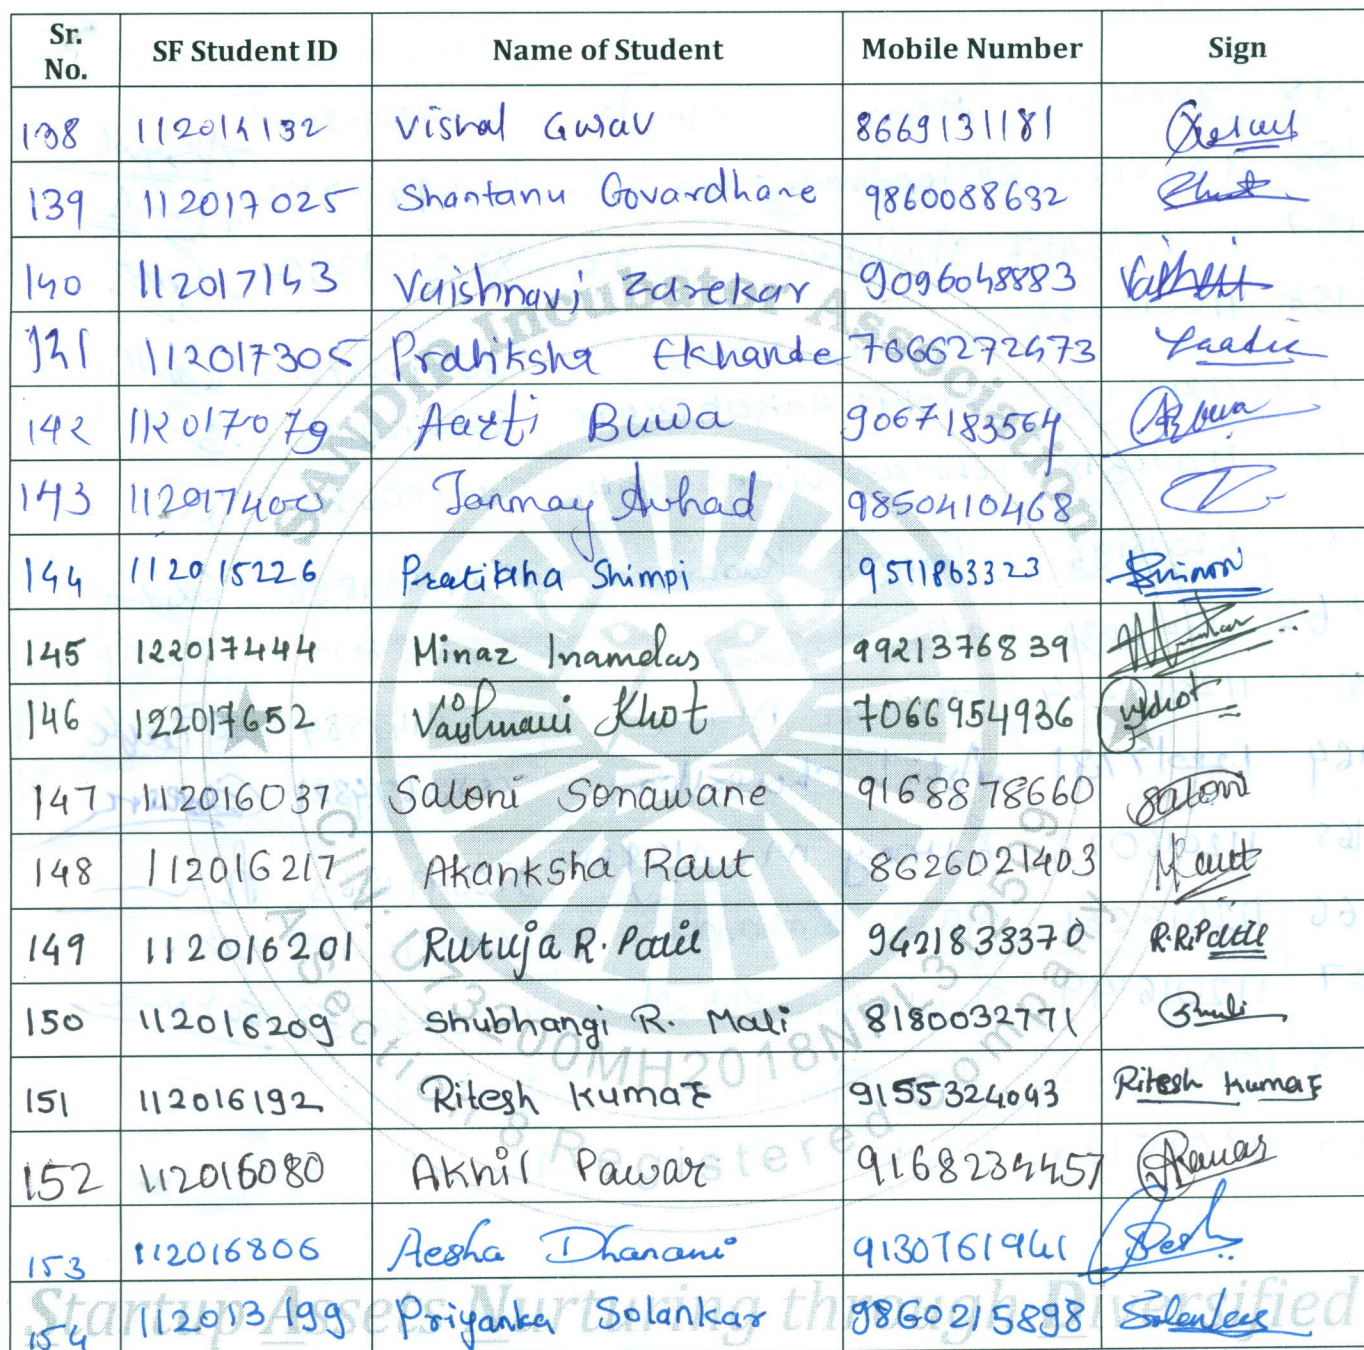 Sr. No. SF Student ID Name of Student Mobile Number Sign
138 112014132 Vishal Gurav 8669131181
139 112017025 Shantanu Govardhane 9860088632
140 112017143 Vaishnavi Zarekar 9096048883
141 112017305 Pratiksha Ekhande 7066272473
142 112017079 Aarti Buwa 9067183564
143 112017400 Tanmay Avhad 9850410468
144 112015226 Pratiktha Shimpi 9511863323
145 122017444 Minaz Inamdar 9921376839
146 122017652 Vaishnavi Khot 7066954936
147 112016037 Saloni Sonawane 9168878660 Saloni
148 112016217 Akanksha Raut 8626021403 Raut
149 112016201 Rutuja R. Patil 9421833370 R.R.Patil
150 112016209 Shubhangi R. Mali 8180032771
151 112016192 Ritesh Kumar 9155324043 Ritesh Kumar
152 112016080 Akhil Pawar 9168234457
153 112016806 Aesha Dhanani 9130761941
154 112013199 Priyanka Solankar 9860215898
SANDIP Incubator Association
CIN: U73200MH2018NPL3
A Section 8 Registered Company
Startup Assets Nurturing through Diversified